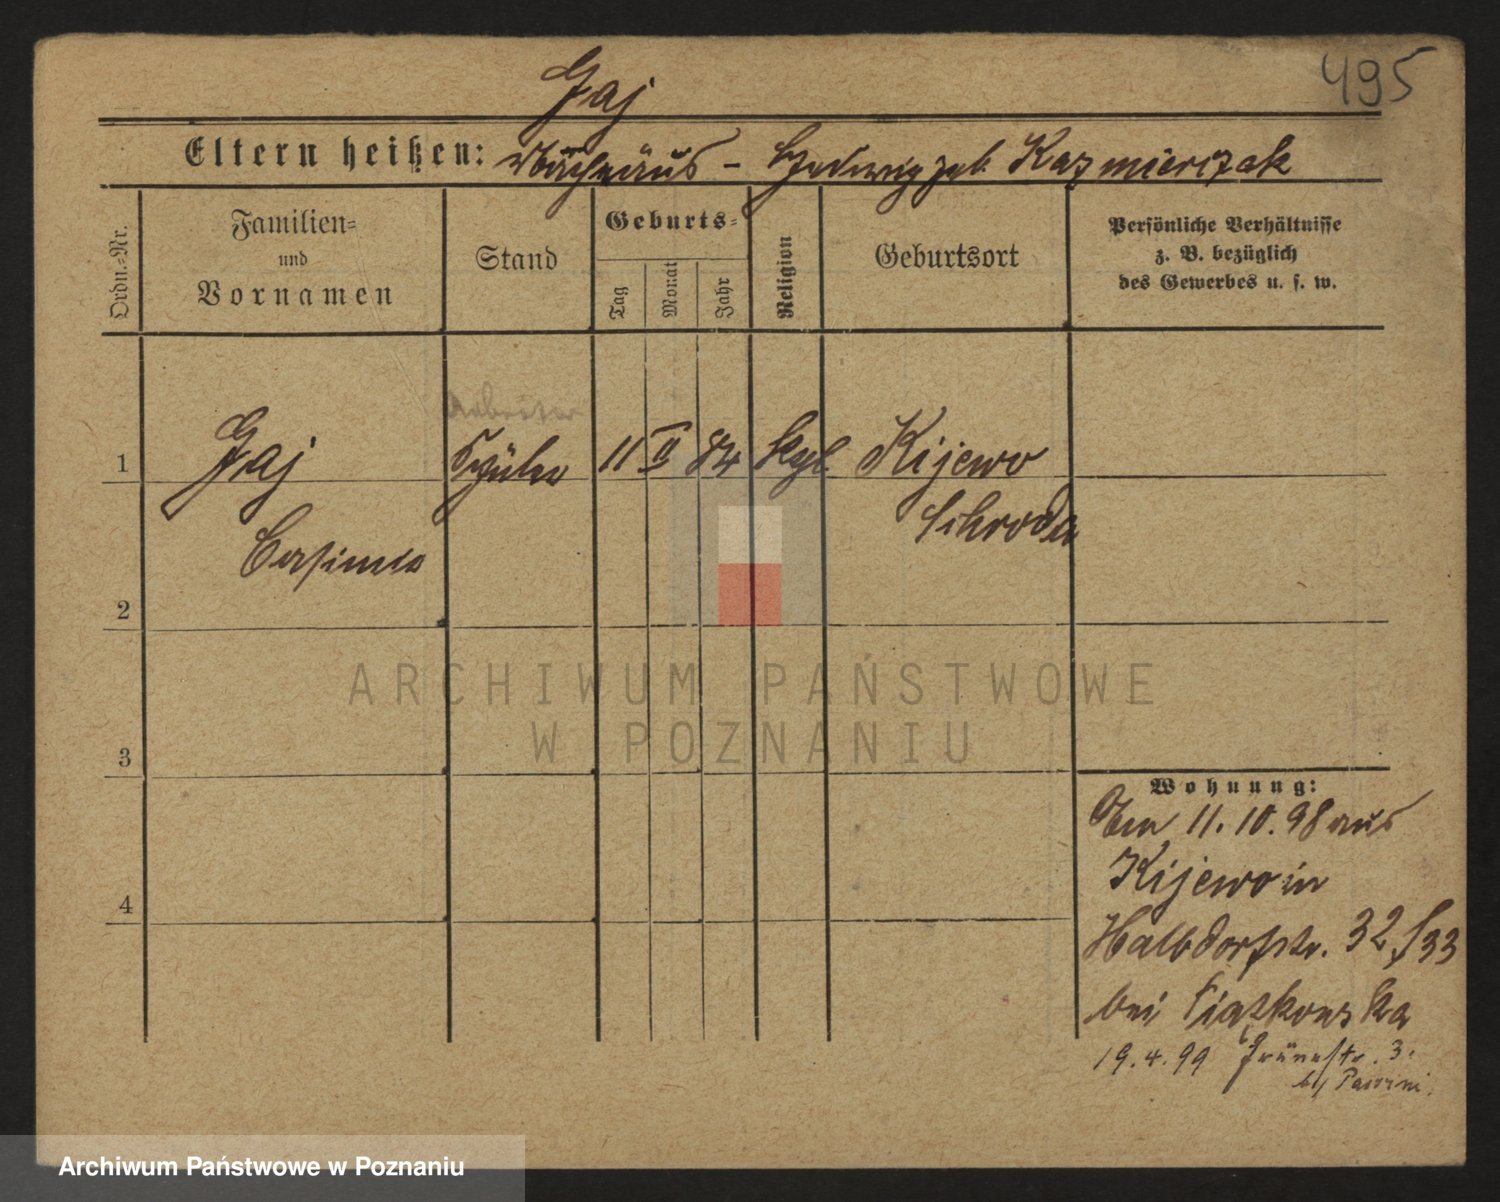 495
Gaj
Eltern heißen: Mathäus - Hedwig geb. Kazmierczak
Ordn.-Nr.
Familien-
und
Vornamen
Stand
Geburts-
Tag
Monat
Jahr
Religion
Geburtsort
Persönliche Verhältnisse
z. B. bezüglich
des Gewerbes u. s. w.
Arbeiter
1 Gaj Schüler 11 II 84 kath. Kijewo
Schroda
Casimir
2
3
4
ARCHIWUM PAŃSTWOWE
W POZNANIU
Wohnung:
Am 11.10.98 aus
Kijewo in
Halbdorfstr. 32/33
bei Piaskowska
19.4.99 Grünestr. 3.
b/
Archiwum Państwowe w Poznaniu